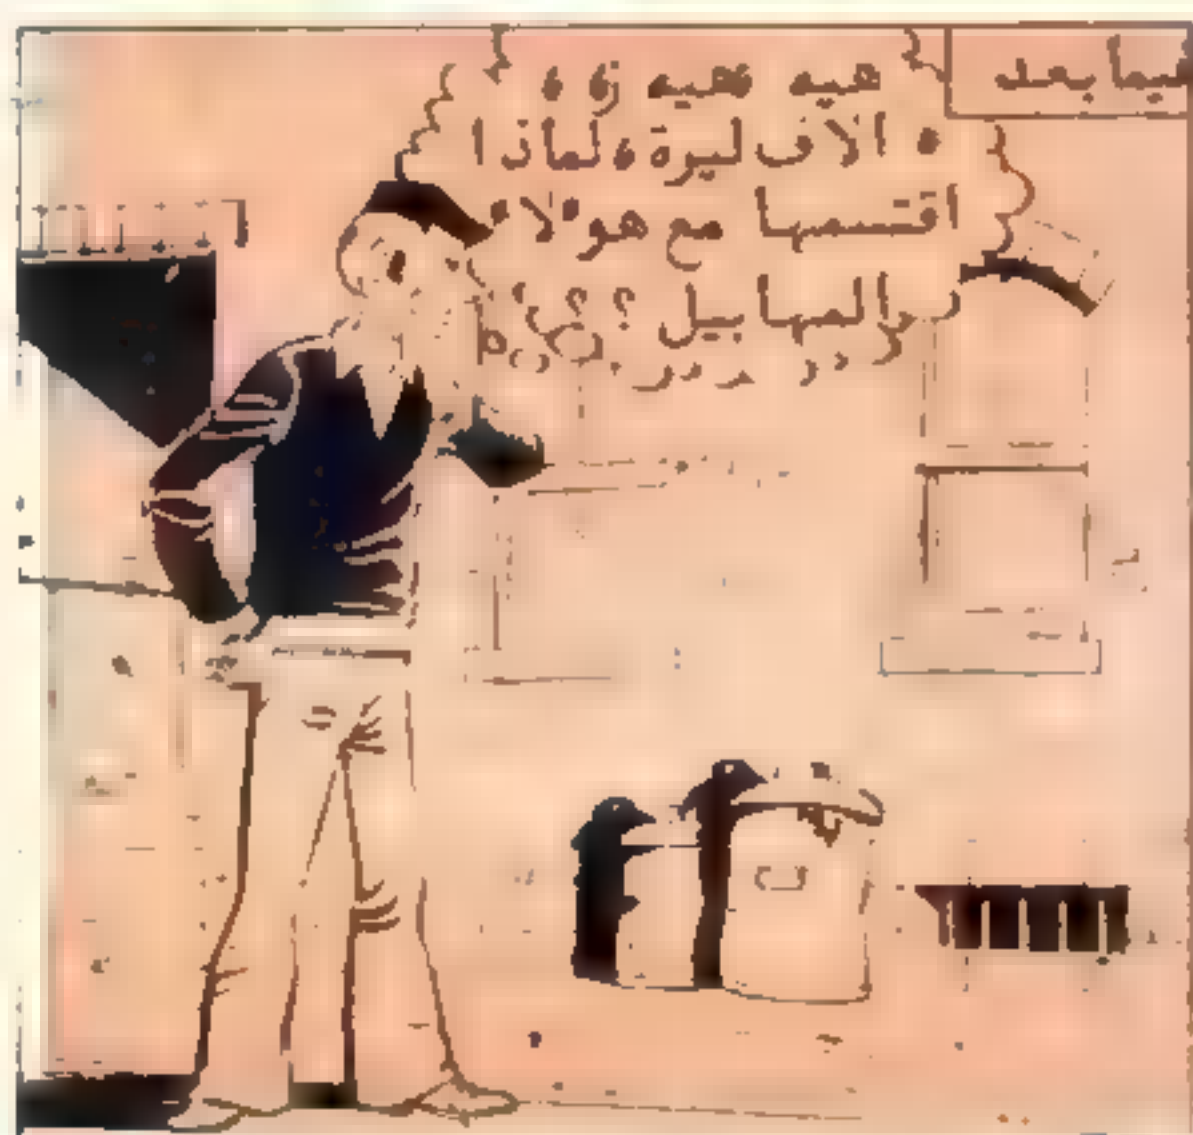 فيما بعد
هيه هيه ز٥ ٥
٥ آلاف ليرة ، لماذا
اقتسمها مع هولاء
المهابيل ؟ ؟